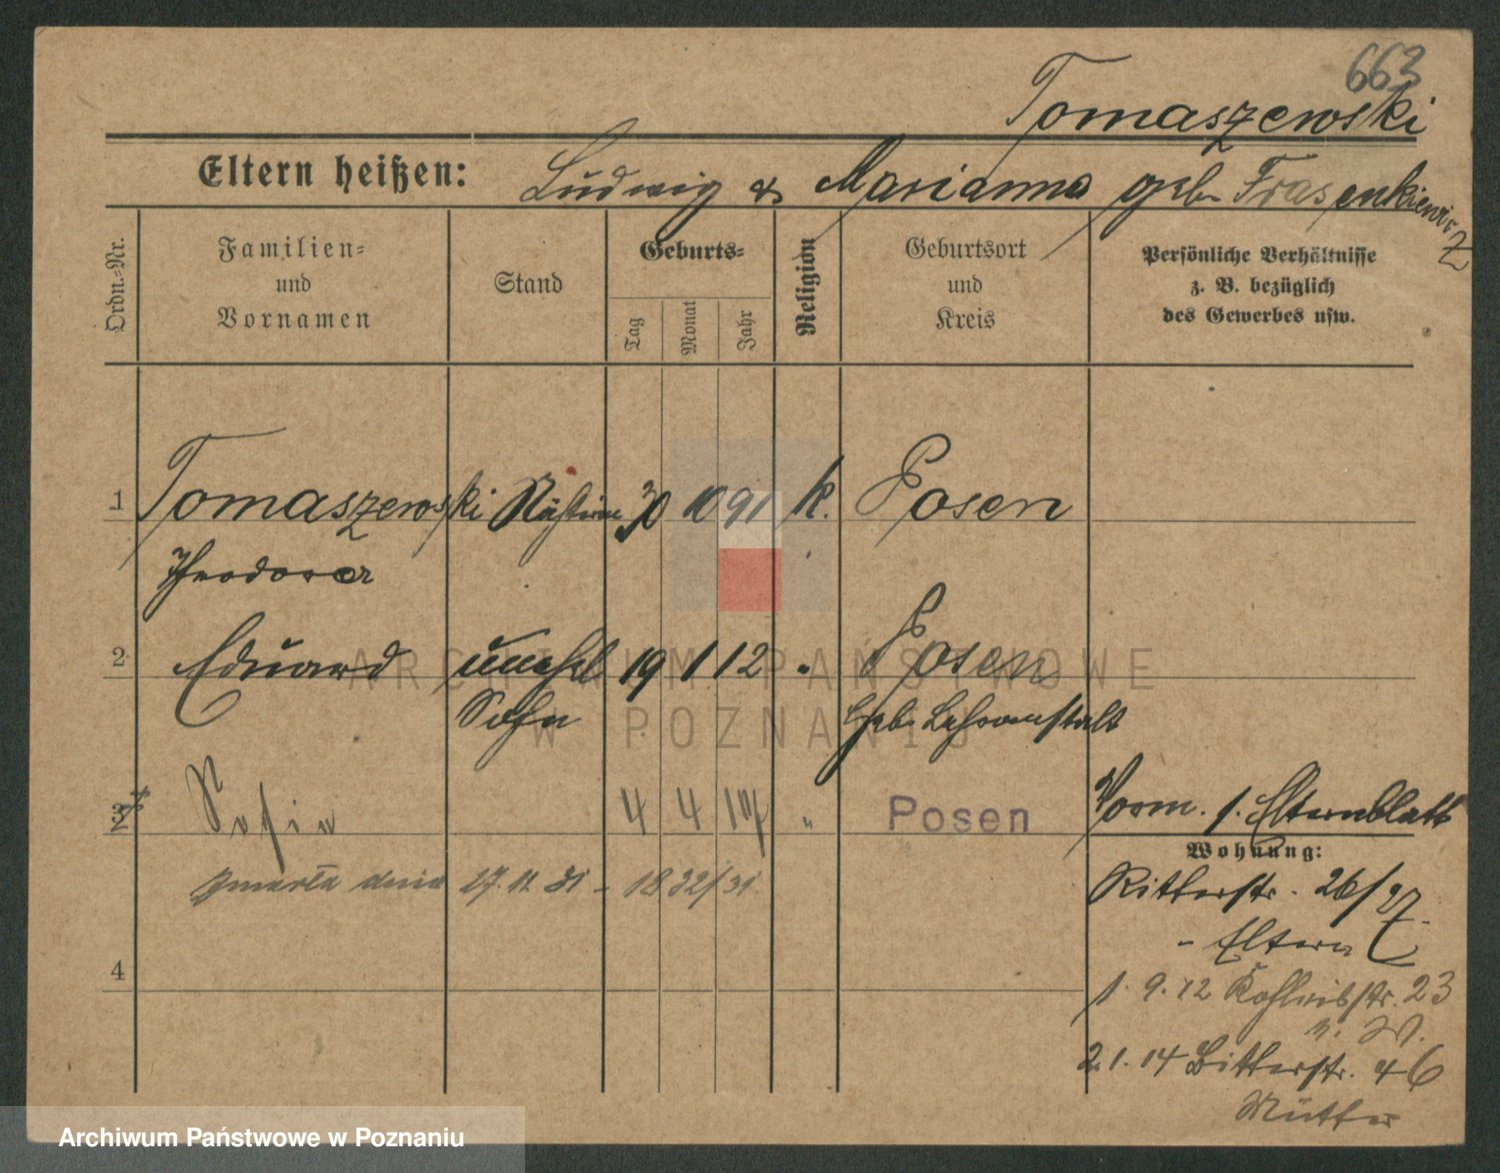 663
Tomaszewski
Eltern heißen: Ludwig & Marianna geb. Frasenkiewicz
Ordn.-Nr.
Familien- und Vornamen
Stand
Geburts-
Tag
Monat
Jahr
Religion
Geburtsort und Kreis
Persönliche Verhältnisse z. B. bezüglich des Gewerbes usw.
1 Tomaszewski Näherin 30 10 91 k. Posen
Theodora
2 Eduard unehel. 19 1 12 " Posen
Sohn Geb. Lehranstalt
3 Sofia 4 4 " Posen Vorm. s. Elternblatt
Wohnung:
zmarła dnia 27. 11. 31 - 1832/31. Ritterstr. 26/27.
- Eltern
4
1. 9. 12 Kohleisstr. 23
2. 1. 14 Bitterstr. 46
Mutter
ARCHIWUM PAŃSTWOWE
W POZNANIU
Archiwum Państwowe w Poznaniu